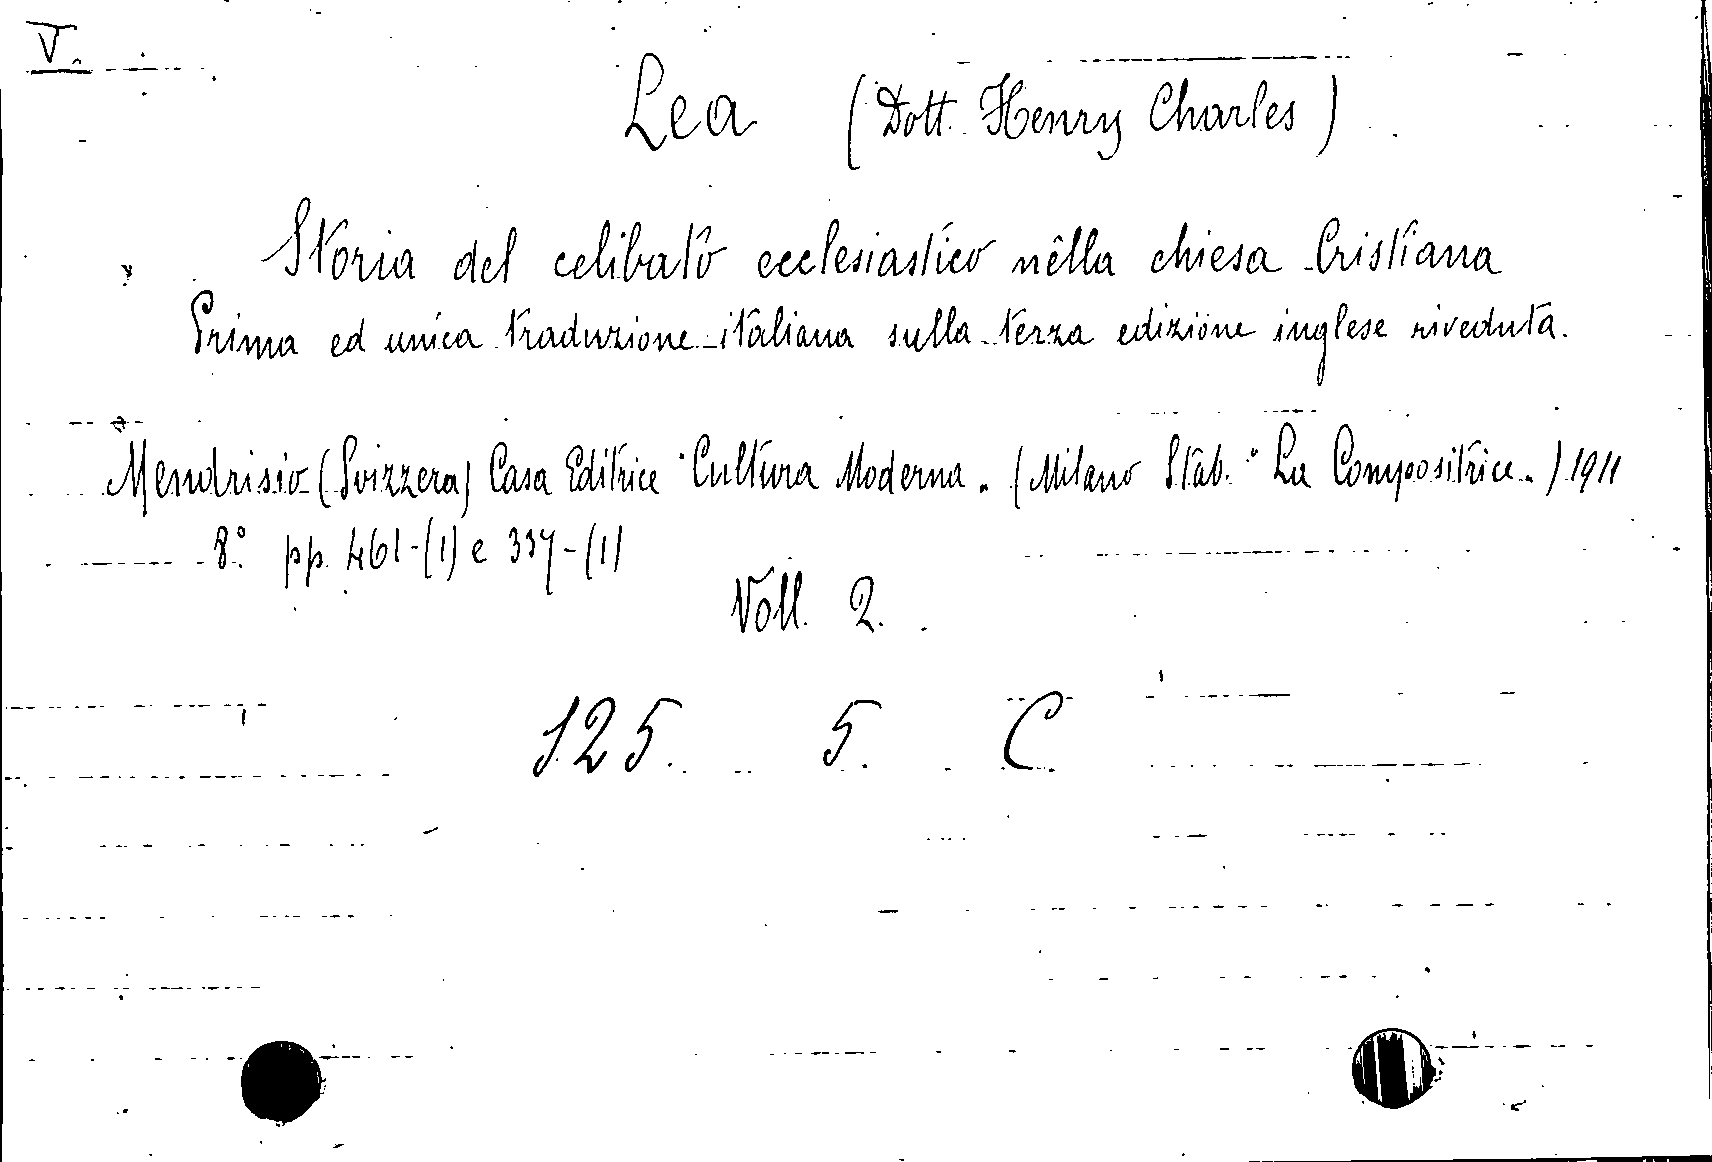 V.
Lea (Dott. Henry Charles)
Storia del celibato ecclesiastico nella chiesa Cristiana
Prima ed unica traduzione italiana sulla terza edizione inglese riveduta.
Mendrisio (Svizzera) Casa Editrice "Cultura Moderna„ (Milano Stab. "La Compositrice„) 1911
8.° pp. 461-(1) e 337-(1)
Voll. 2.
125. 5. C